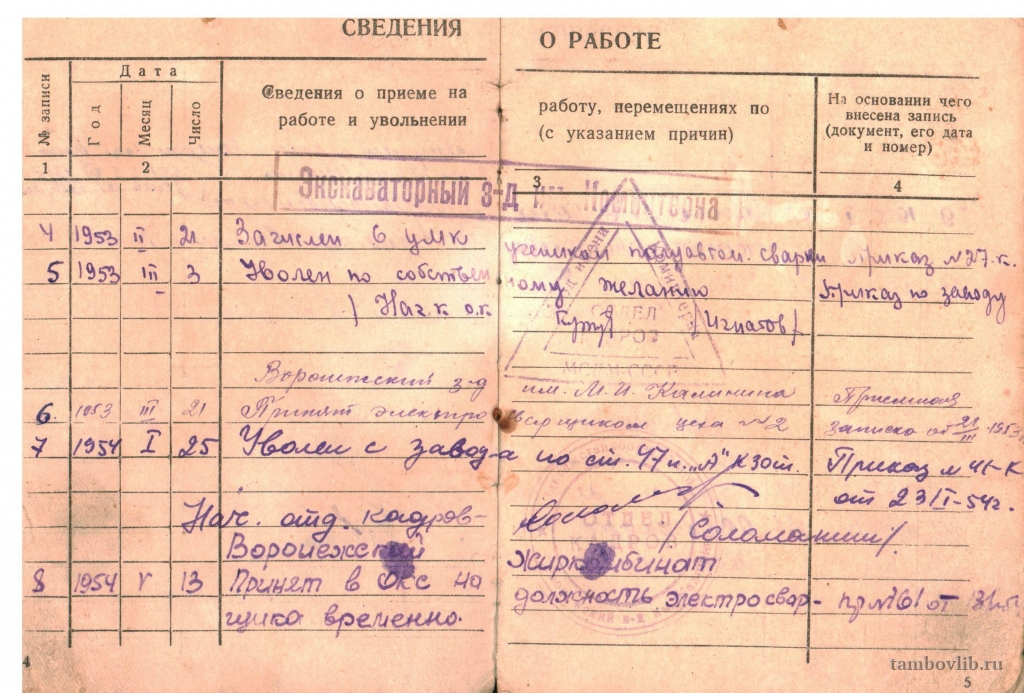 СВЕДЕНИЯ О РАБОТЕ
№ записи
Дата
Год
Месяц
Число
Сведения о приеме на работу, перемещениях по
работе и увольнении (с указанием причин)
На основании чего
внесена запись
(документ, его дата
и номер)
1 2 3 4
Экскаваторный з-д им. Коминтерна
4 1953 II 21 Зачислен в цмк учеником полуавтом. сварки Приказ №27-к.
5 1953 III 3 Уволен по собственному желанию Приказ по заводу
/Нач. о.к. Игнатов/
ОТДЕЛ
Воронежский з-д им. М.И. Калинина Приемная
6. 1953 III 21 Принят электросварщиком цеха №2 записка от 21/III-1953
7 1954 I 25 Уволен с завод-а по ст. 47 п. "А" Кзот. Приказ №
от 23/I-54г.
Нач. отд. кадров-
ОТДЕЛ
КАДРОВ
Воронежский Жиркомбинат
8 1954 V 13 Принят в ОКС на должность электросвар- пр №101 от
щика временно.
4
5
tambovlib.ru